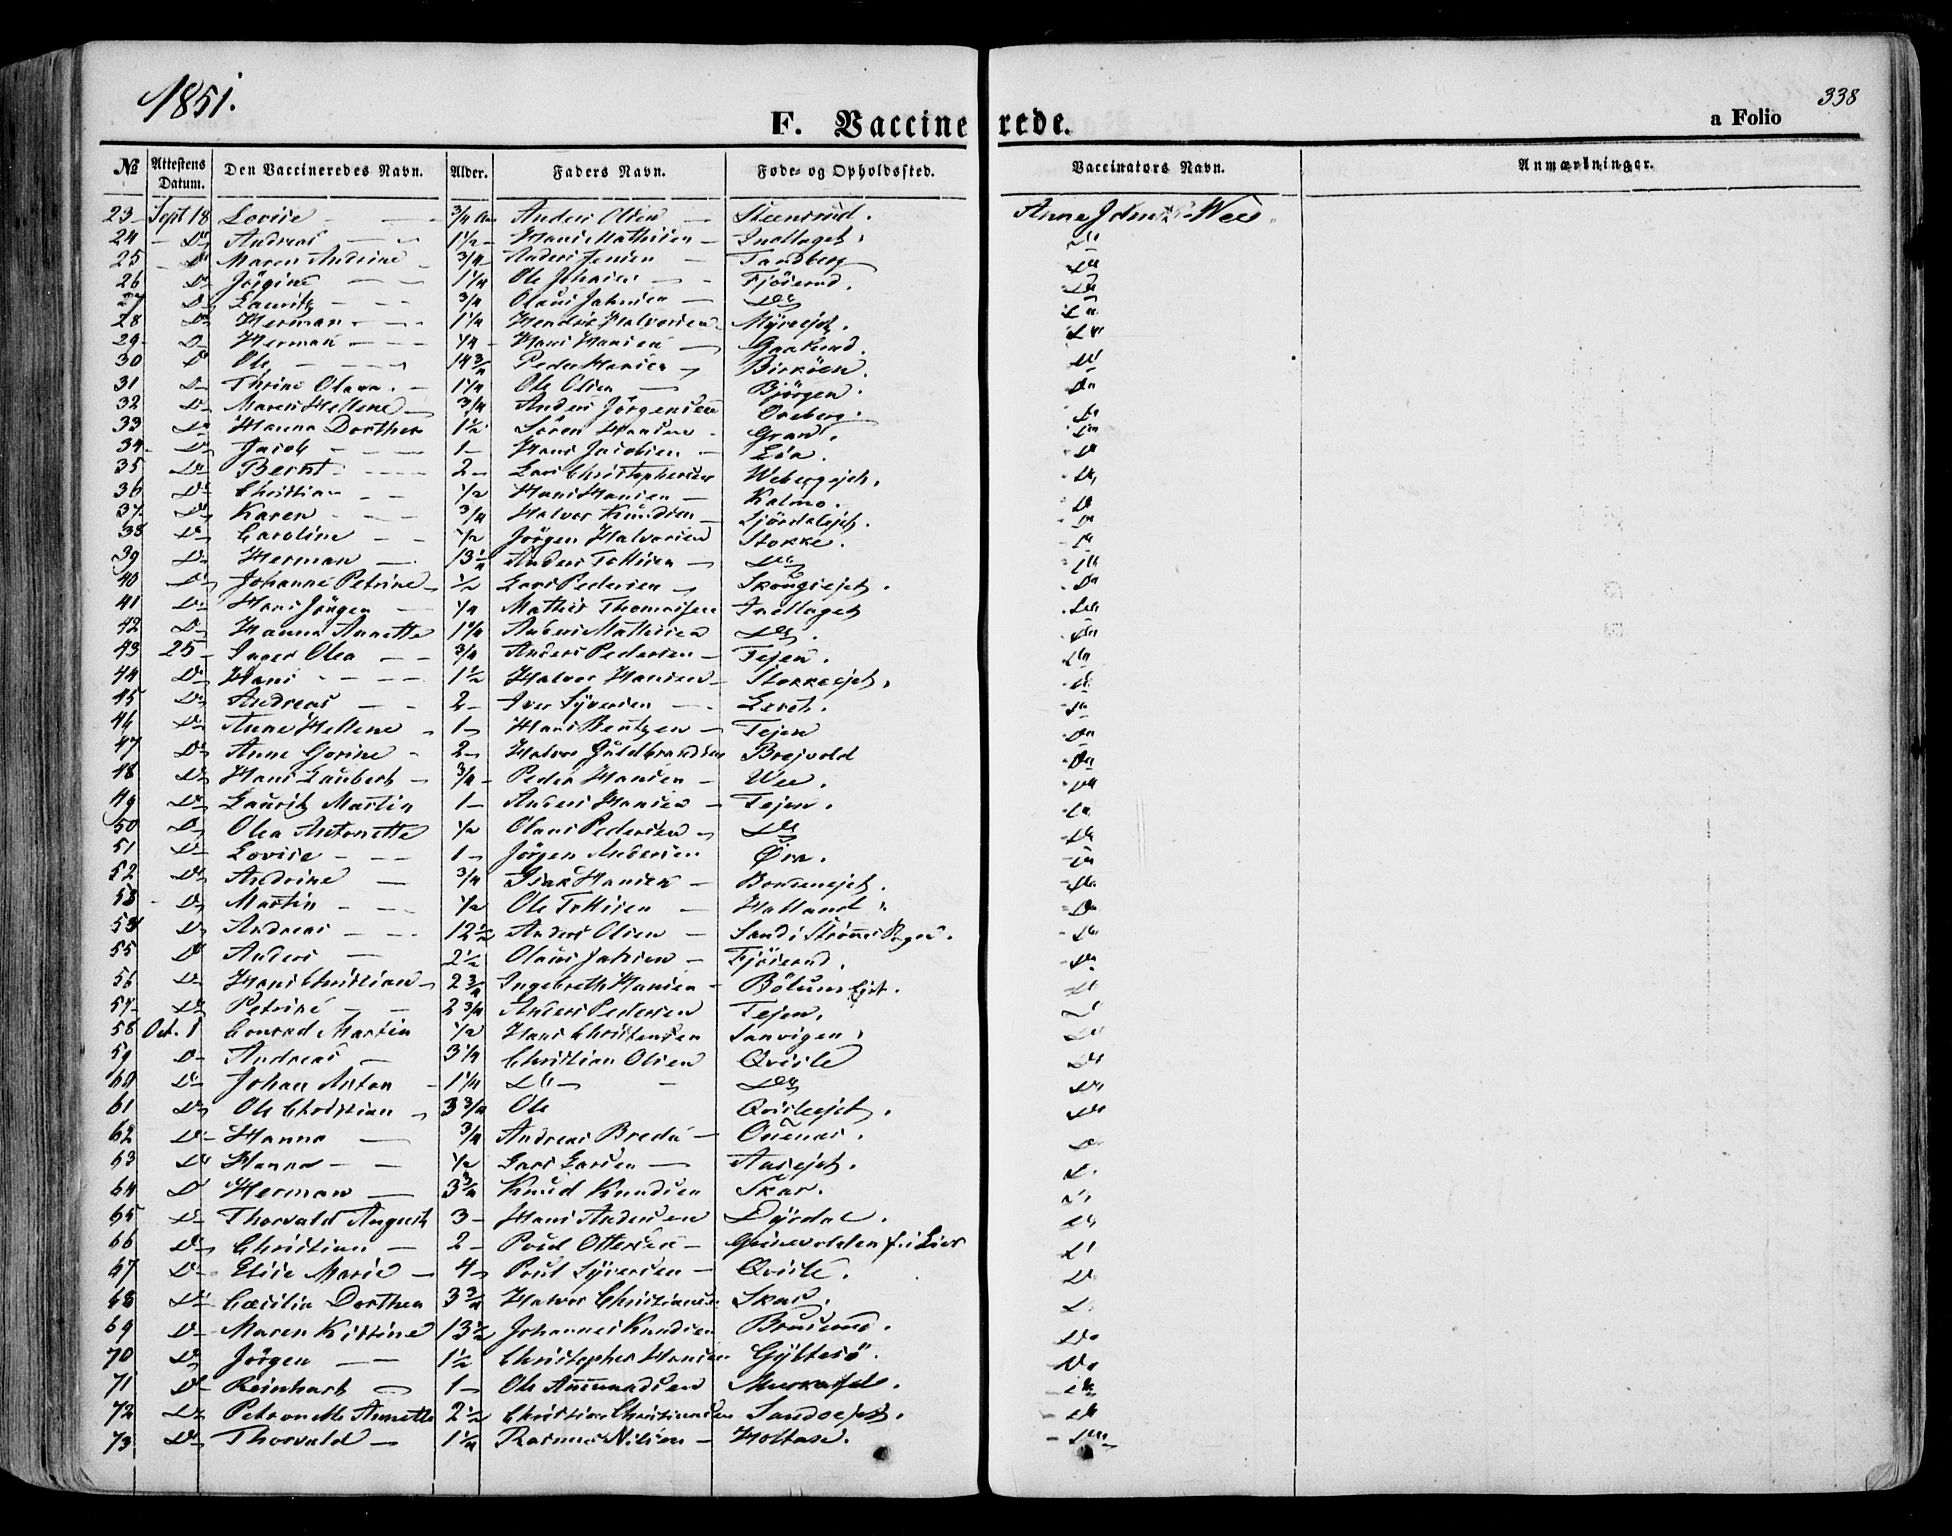 1851.
338
F. Vaccinerede.
a Folio
№ Attestens Datum. Den Vaccineredes Navn. Alder. Faders Navn. Føde- og Opholdssted. Vaccinators Navn. Anmærkninger.
23 Sept 18 Lovise 3/4 Anders Olsen Steensrud. Anne
24 Do Andreas 1 1/2 Hans Mathisen Indlaget. Do
25 Do Maren Andrine 3/4 Anders Jensen Tandberg Do
26 Do Jörgine 1 1/4 Ole Fjösrud. Do
27 Do Lauritz 3/4 Olaus Do Do
28 Do Herman 1 1/4 Hendric Halvorsen Myreejet. Do
29 Do Herman 1/4 Hans Hansen Do
30 Do Ole 14 3/4 Peder Hansen Birköen. Do
31 Do Thrine Olava. 1 1/4 Ole Olsen Björgen. Do
32 Do Maren Hellene 3/4 Anders Jörgensen Oveberg. Do
33 Do Hanna Dorthea 1 1/2 Sören Hansen Grand. Do
34 Do Jacob 1 Hans Jacobsen Lia. Do
35 Do Bernt 2 Lars Christophersen Webergejet. Do
36 Do Christian 1/2 Hans Hansen Kalmo. Do
37 Do Karen 3/4 Halvor Knudsen Do
38 Do Caroline 1/2 Jörgen Halvorsen Stokke. Do
39 Do Herman 13 1/2 Anders Tollisen Do Do
40 Do Johanne Petrine 1/2 Lars Pedersen Skougsejet. Do
41 Do Hans Jörgen 1/4 Mathis Thomassen Indlaget Do
42 Do Hanna Annette 1 1/4 Anders Mathisen Do. Do
43 25 Inger Olea 3/4 Anders Pedersen Tejen. Do
44 Do Hans 1 1/2 Halvor Hansen Stokkeejet. Do
45 Do Andreas 2 Iver Syversen Do
46 Do Anne Hellene 1 Hans Bentzen Tejen Do
47 Do Anne Gorine 2 Halvor Guldbrandsen Brejvold Do
48 Do Hans Laubert 3/4 Peder Hansen Wee. Do
49 Do Lauritz Martin 1 Anders Hansen Tejen. Do
50 Do Olea Antonette 1/2 Olaus Pedersen Do Do
51 Do Lovise 1 Jörgen Andersen Øra. Do
52 Do Andrine 3/4 Isak Hansen Do
53 Do Martin 1/2 Ole Tollisen Halland. Do
54 Do Andreas 12 1/2 Anders Olsen Sand i Strömms Do
55 Do Anders 2 1/2 Olaus Fjösrud. Do
56 Do Hans Christian 2 3/4 Ingebreth Hansen Bölums Ejet. Do
57 Do Petrine 2 3/4 Anders Pedersen Tejen. Do
58 Oct. 1 Conrad Martin 1/2 Hans Christensen Sanvigen. Do
59 Do Andreas 3 1/4 Christian Olsen Qvisle Do
60 Do Johan Anton 1 1/4 Do Do Do
61 Do Ole Christian 3 3/4 Ole Qvisleejet. Do
62 Do Hanna 3/4 Andreas Breda Do
63 Do Hanna 1/2 Lars Larsen Aasejet. Do
64 Do Herman 3 3/4 Knud Knudsen Skar. Do
65 Do Thorvald August 3 Hans Andersen Dyrdal. Do
66 Do Christian 2 Poul Ottersen f. i Lier Do
67 Do Elise Marie 4 Poul Syversen Qvisle. Do
68 Do Cæcilia Dorthea 3 3/4 Halvor Christiansen Skar. Do
69 Do Maren Kistine 13 1/2 Johannes Knudsen Bruserud. Do
70 Do Jörgen 1 1/2 Christopher Hansen Gyltesö. Do
71 Do Reinhart 1 Ole Ammundsen Do
72 Do Petronelle Annette 2 1/2 Christian Christiansen Sandoejet. Do
73 Do Thorvald 1 1/4 Rasmus Nilsen Holtase. Do